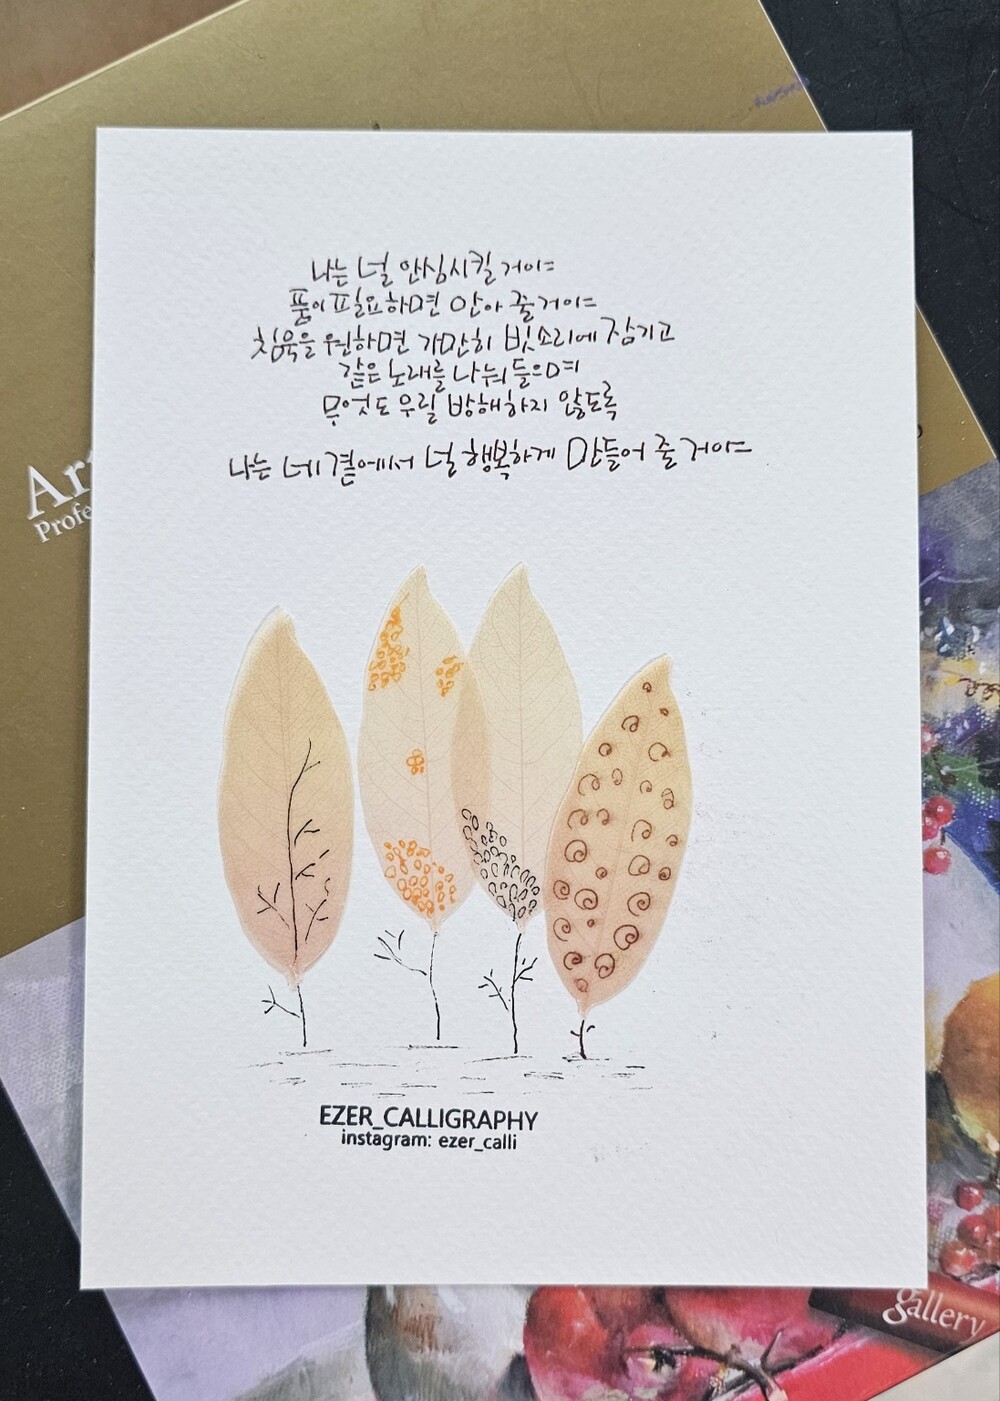 나는 널 안심시킬 거야
품이 필요하면 안아 줄거야
침묵을 원하면 가만히 빗소리에 잠기고
같은 노래를 나눠 들으며
무엇도 우릴 방해하지 않도록
나는 네 곁에서 널 행복하게 만들어 줄 거야
Ar
Profe
EZER_CALLIGRAPHY
instagram: ezer_calli
gallery